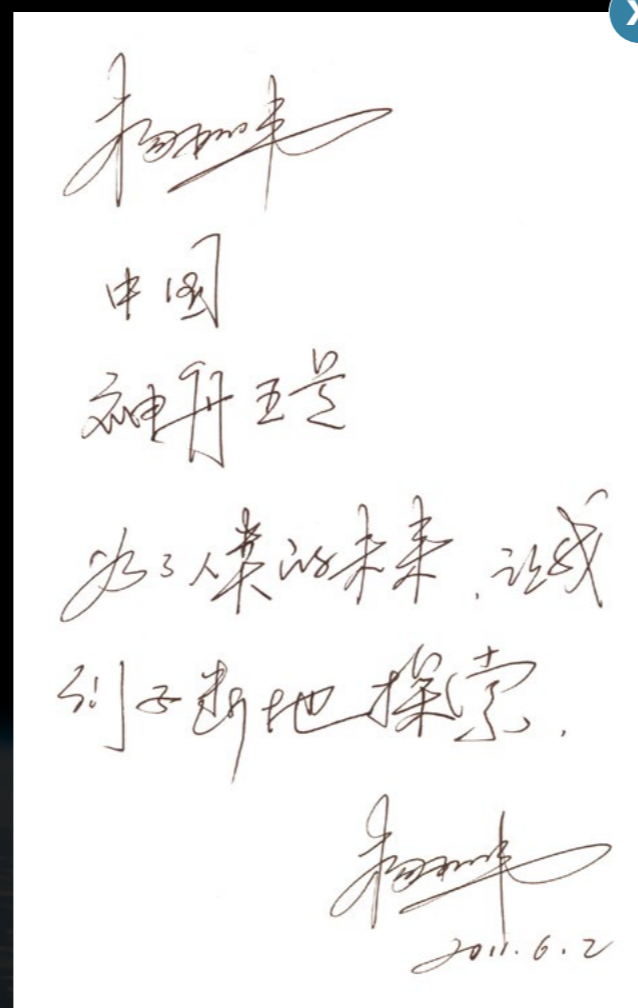 杨利伟
中国
神舟五号
为了人类的未来,让我
们不断地探索.
杨利伟
2011.6.2